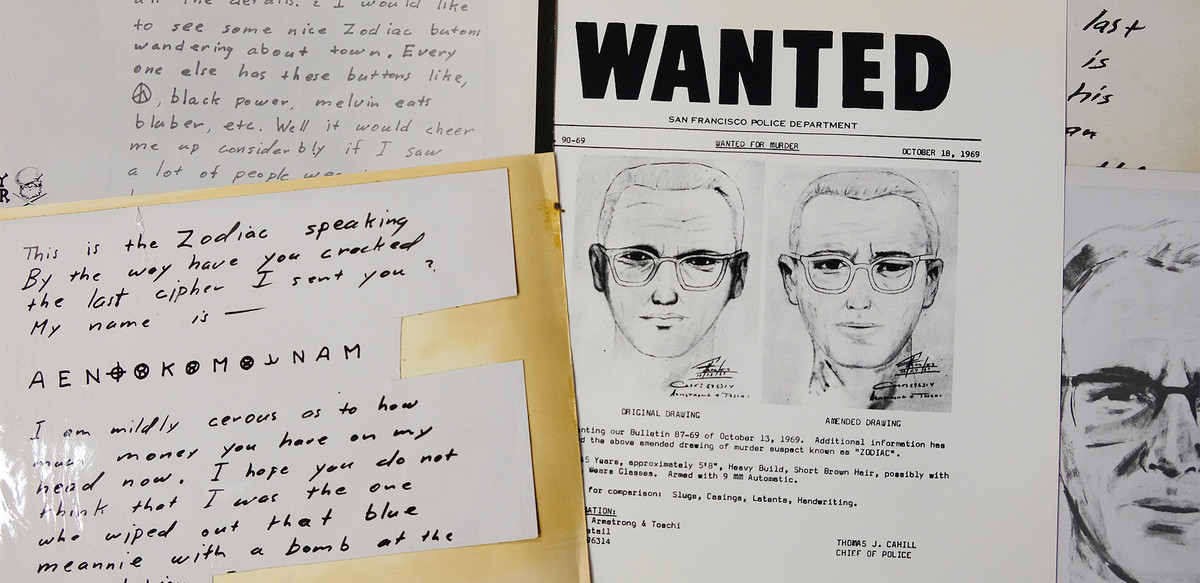 all the details. ? I would like
to see some nice Zodiac butons
wandering about town. Every
one else has these buttons like,
, black power, melvin eats
bluber, etc. Well it would cheer
me up considerbly if I saw
a lot of people
Y
R
This is the Zodiac speaking
By the way have you cracked
the last cipher I sent you ?
My name is —
A E N ⌖ ⊗ K ⊗ M ⊗ N A M
I am mildly cerous as to how
much money you have on my
head now. I hope you do not
think that I was the one
who wiped out that blue
meannie with a bomb at the
WANTED
SAN FRANCISCO POLICE DEPARTMENT
90-69 WANTED FOR MURDER OCTOBER 18, 1969
ORIGINAL DRAWING AMENDED DRAWING
nting our Bulletin 87-69 of October 13, 1969. Additional information has
d the above amended drawing of murder suspect known as "ZODIAC".
5 Years, approximately 5'8", Heavy Build, Short Brown Hair, possibly with
Wears Glasses. Armed with 9 MM Automatic.
for comparison: Slugs, Casings, Latents, Handwriting.
ATION:
Armstrong & Toschi
etail
96314
THOMAS J. CAHILL
CHIEF OF POLICE
last
is
his